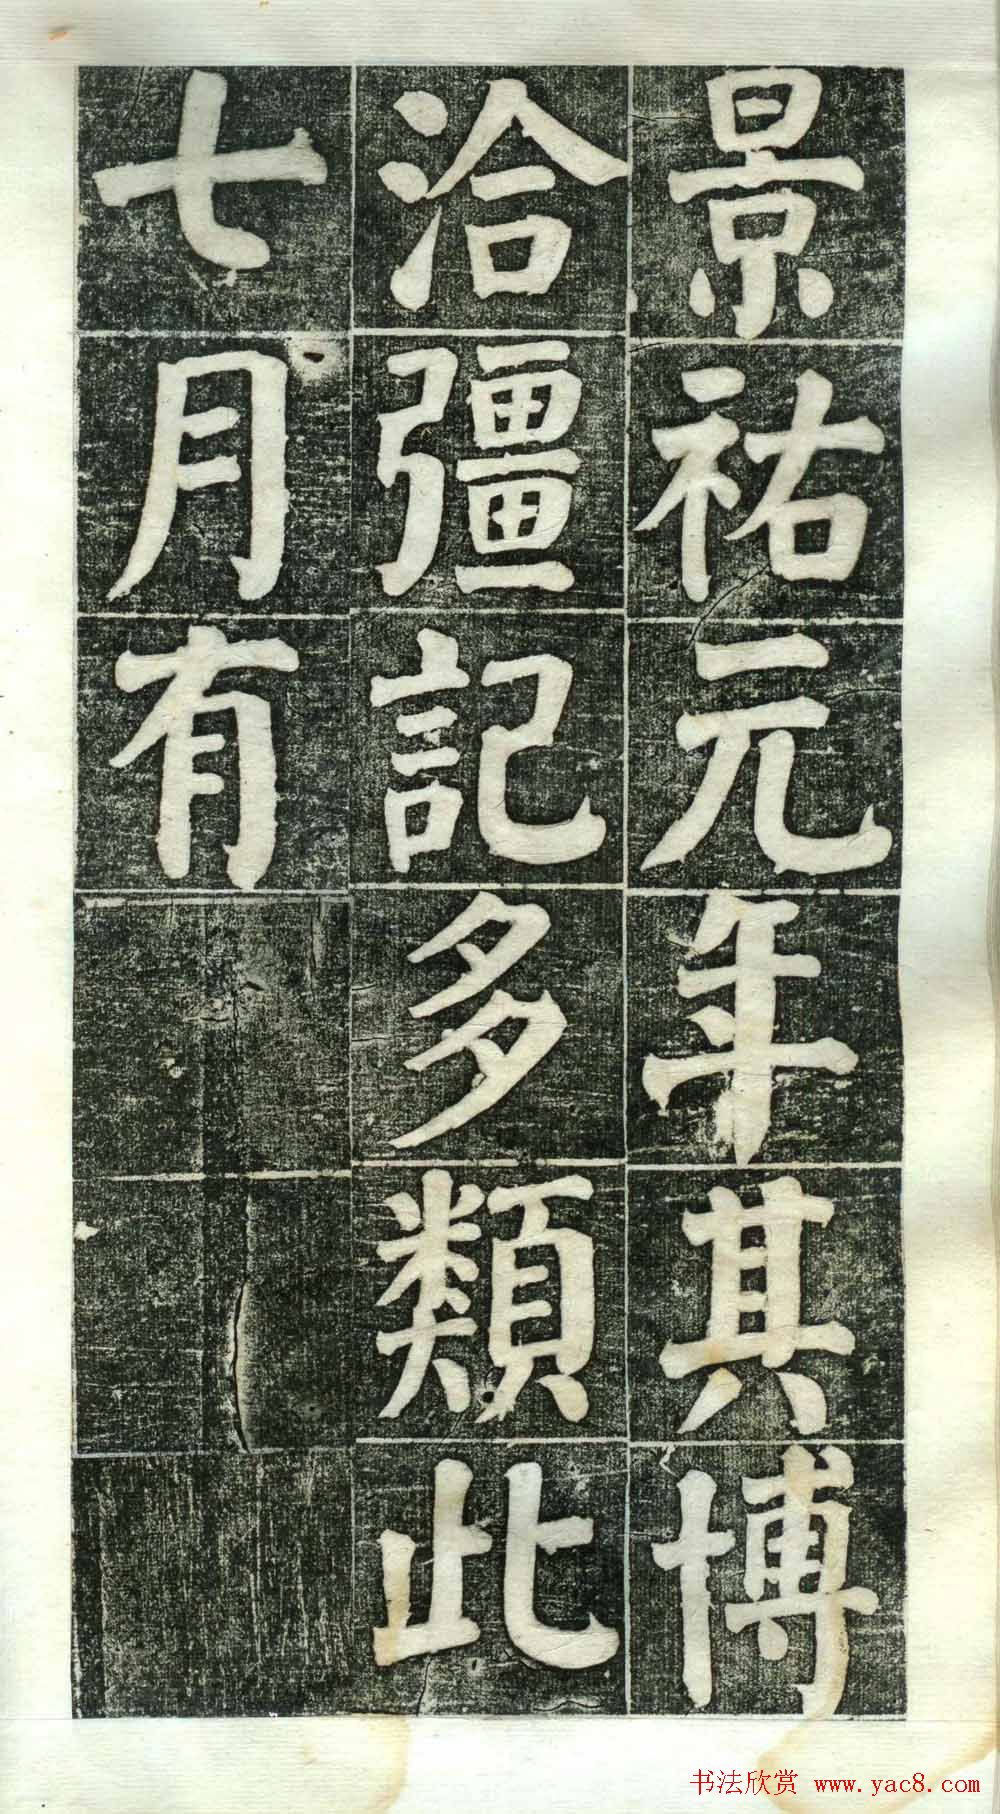 景祐元年其博
洽彊記多類此
七月有
书法欣赏 www.yac8.com